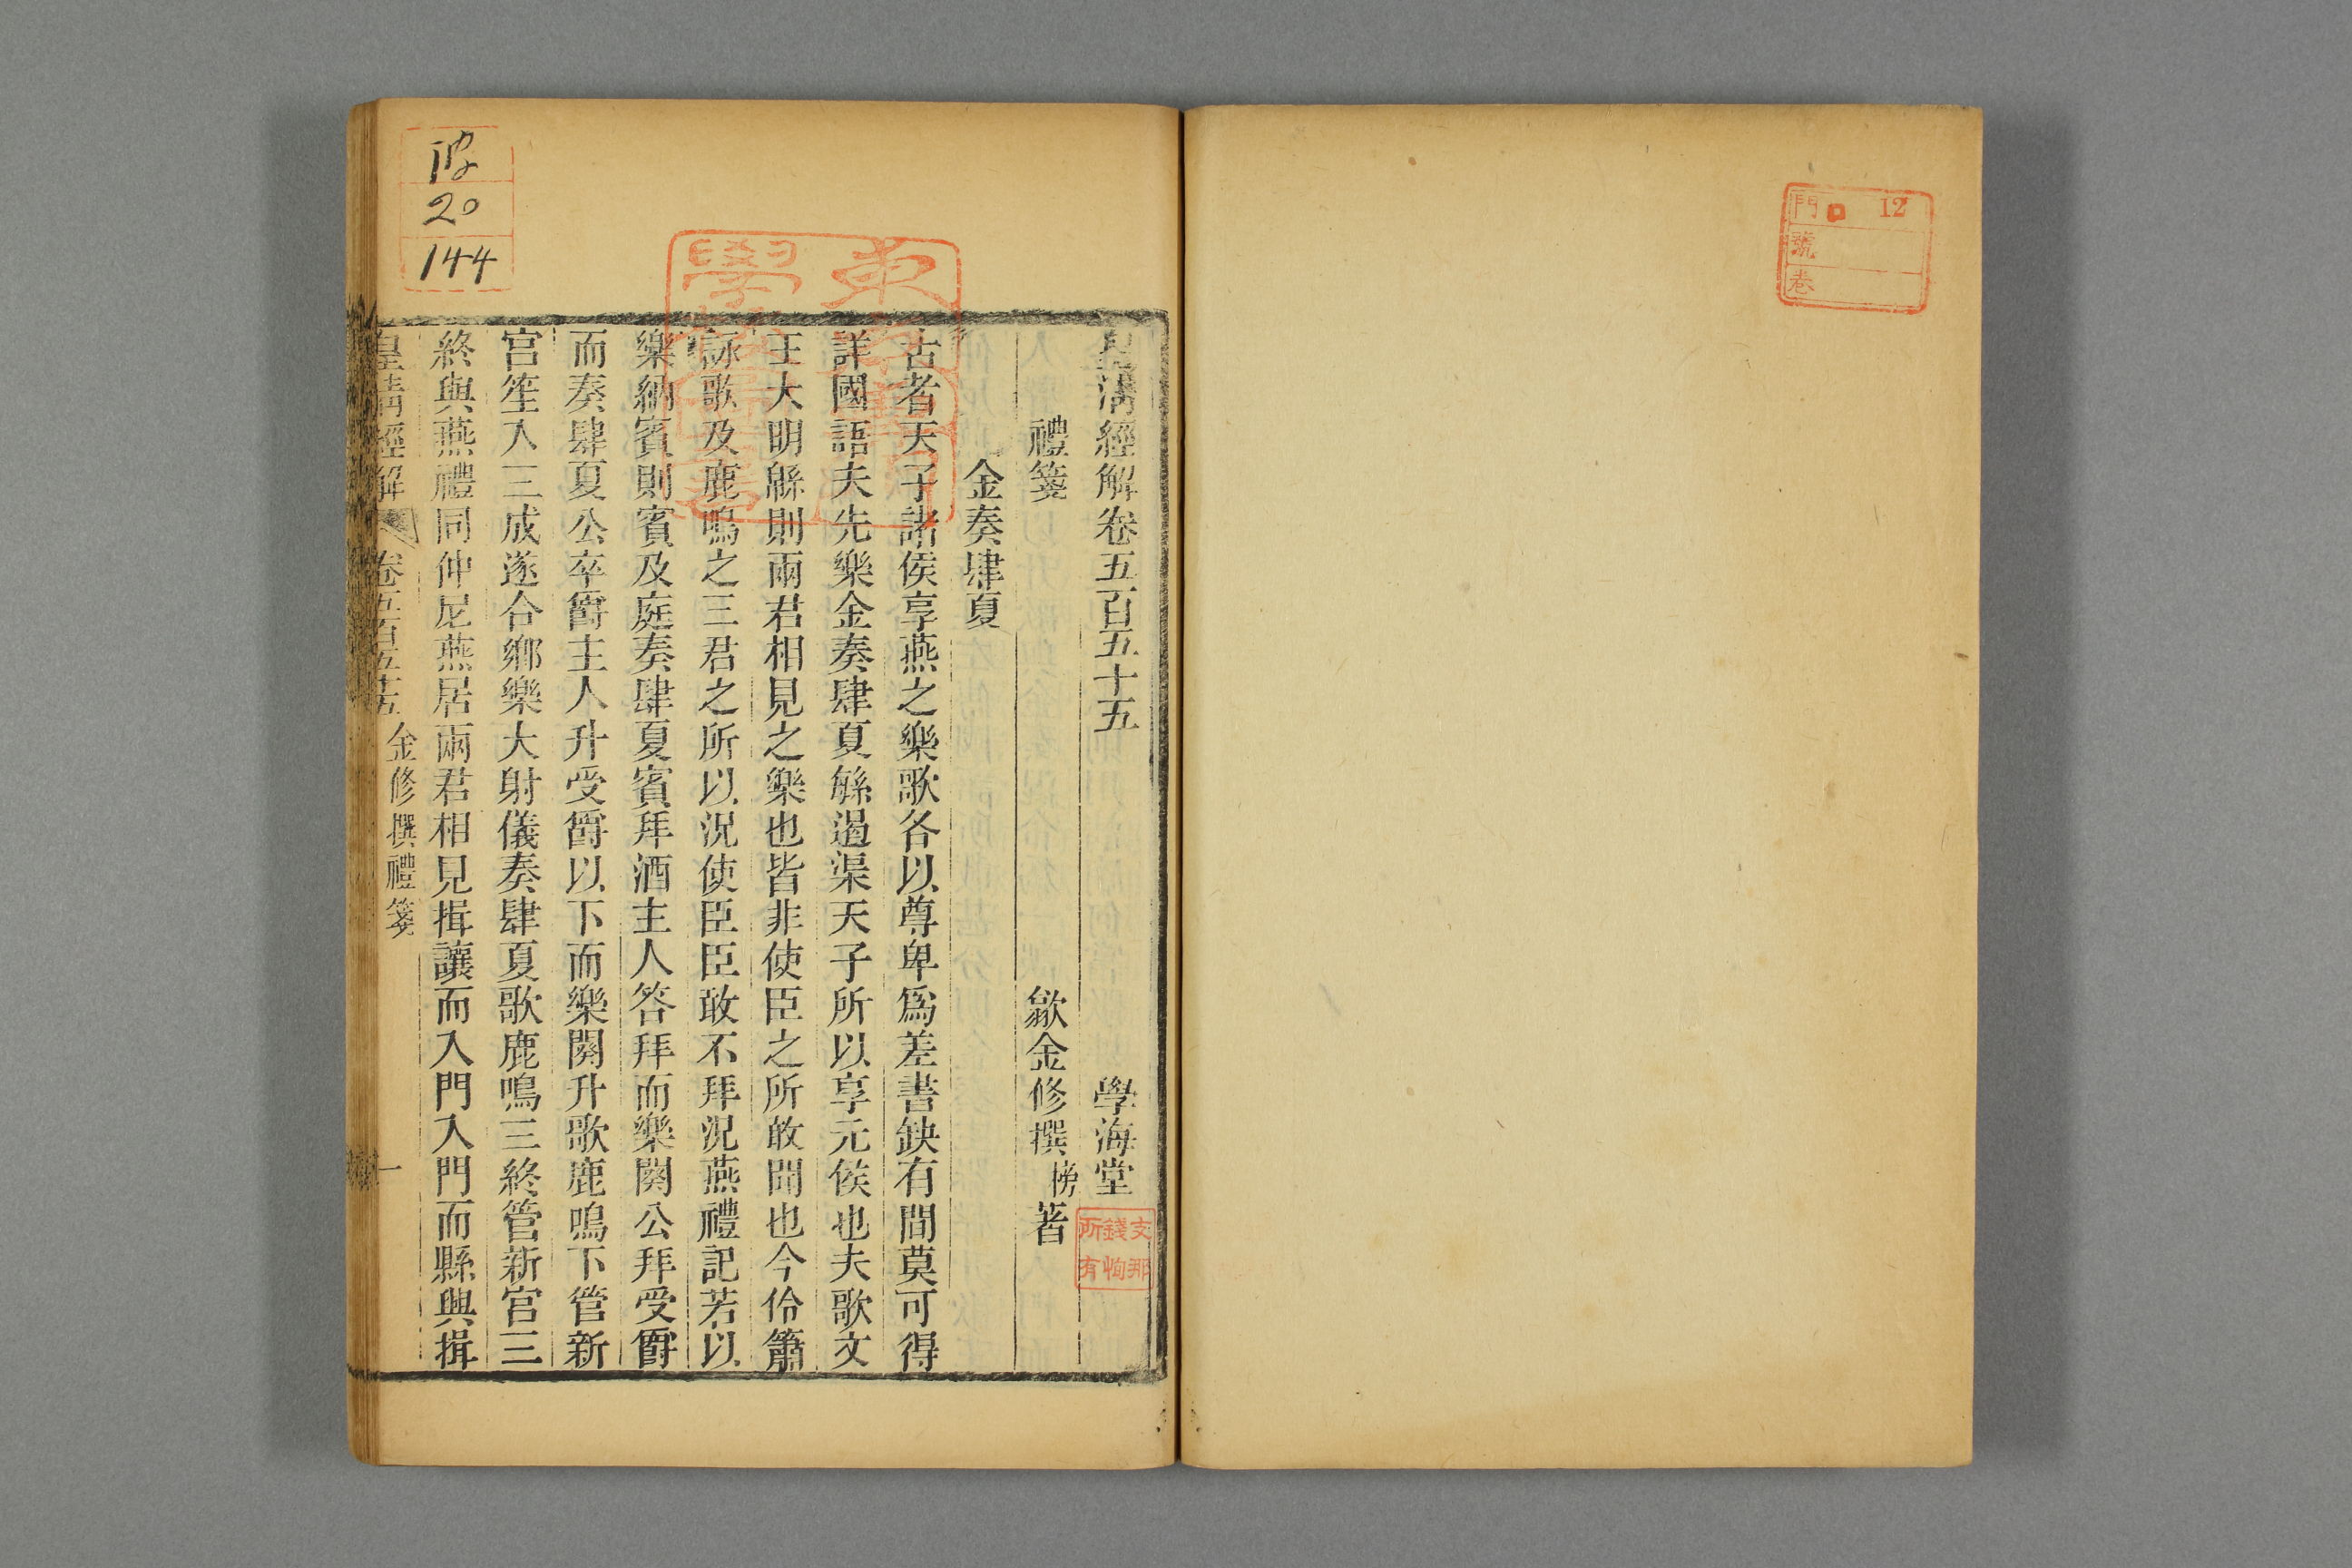 門 12
號
卷
皇清經解卷五百五十五 學海堂
支那
錢恂
所有
禮箋 歙金修撰榜著
金奏肆夏
古者天子諸侯享燕之樂歌各以尊卑爲差書缺有間莫可得
詳國語夫先樂金奏肆夏緐遏渠天子所以享元侯也夫歌文
王大明緜則兩君相見之樂也皆非使臣之所敢聞也今伶簫
詠歌及鹿鳴之三君之所以況使臣臣敢不拜況燕禮記若以
樂納賓則賓及庭奏肆夏賓拜酒主人答拜而樂闋公拜受爵
而奏肆夏公卒爵主人升受爵以下而樂闋升歌鹿鳴下管新
宮笙入三成遂合鄉樂大射儀奏肆夏歌鹿鳴三終管新宮三
終與燕禮同仲尼燕居兩君相見揖讓而入門入門而縣興揖
皇清經解 卷五百五十五 金修撰禮箋 一
20
144